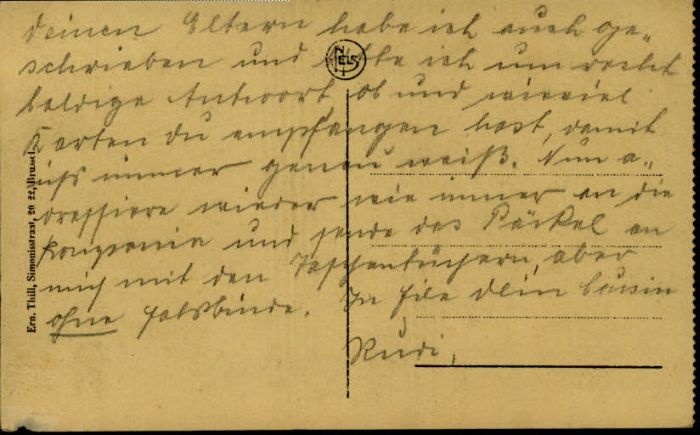 Deinen Eltern habe ich auch ge-
schrieben und bitte ich um recht
baldige Antwort, ob und wieviel
Karten du empfangen hast, damit
ich's immer genau weiß. Nun a-
dressiere wieder wie immer an die
Kompanie und sende das Päckel an
mich mit den Taschentüchern, aber
ohne Halsbinde. In Eile Dein Cousin
Rudi,
NELS
Ern. Thill, Simonisstraat, 20-22, Brussel.